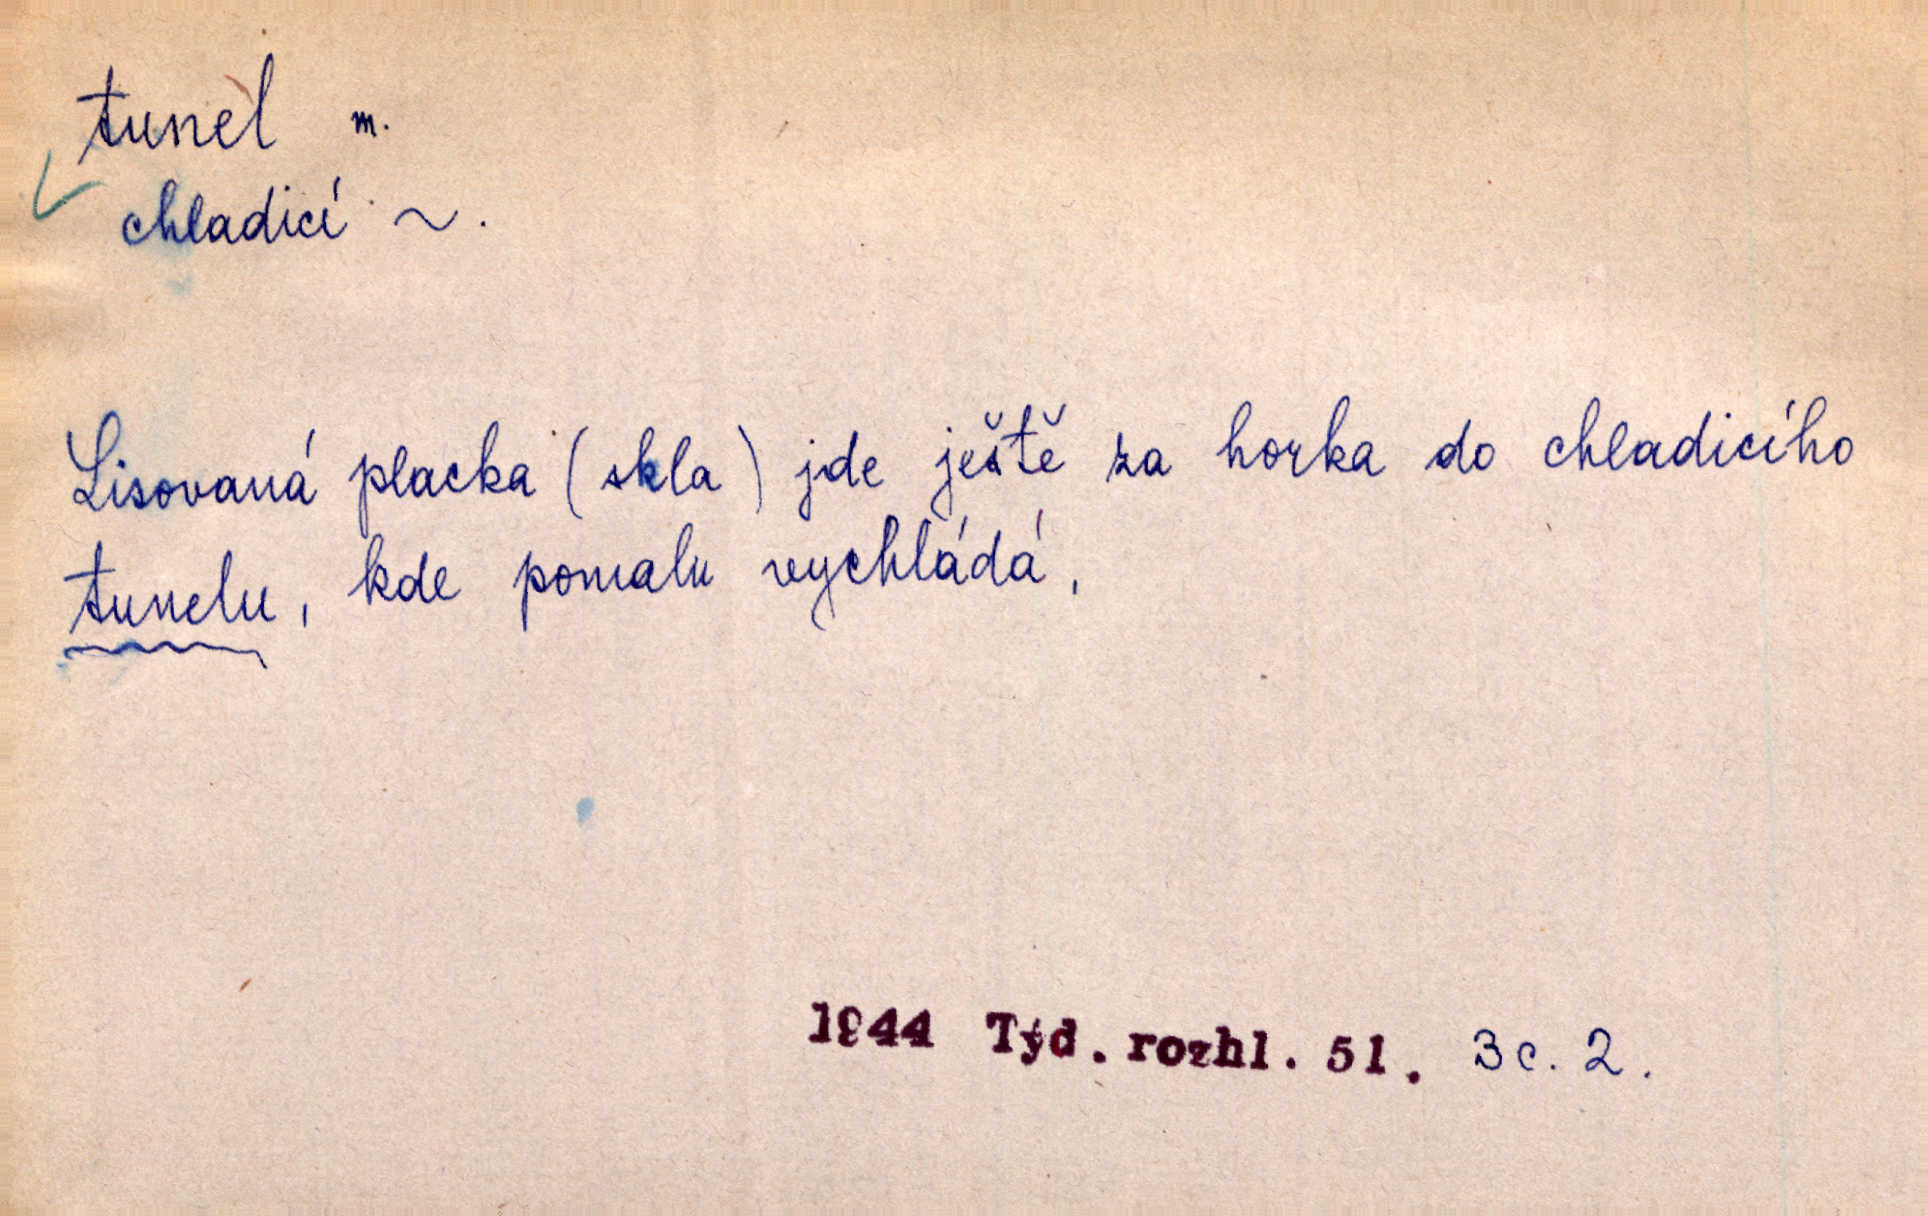 tunel m.
chladicí ~.
Lisovaná placka (skla) jde ještě za horka do chladicího
tunelu, kde pomalu vychládá,
1944 Týd. rozhl. 51. 3 c. 2.